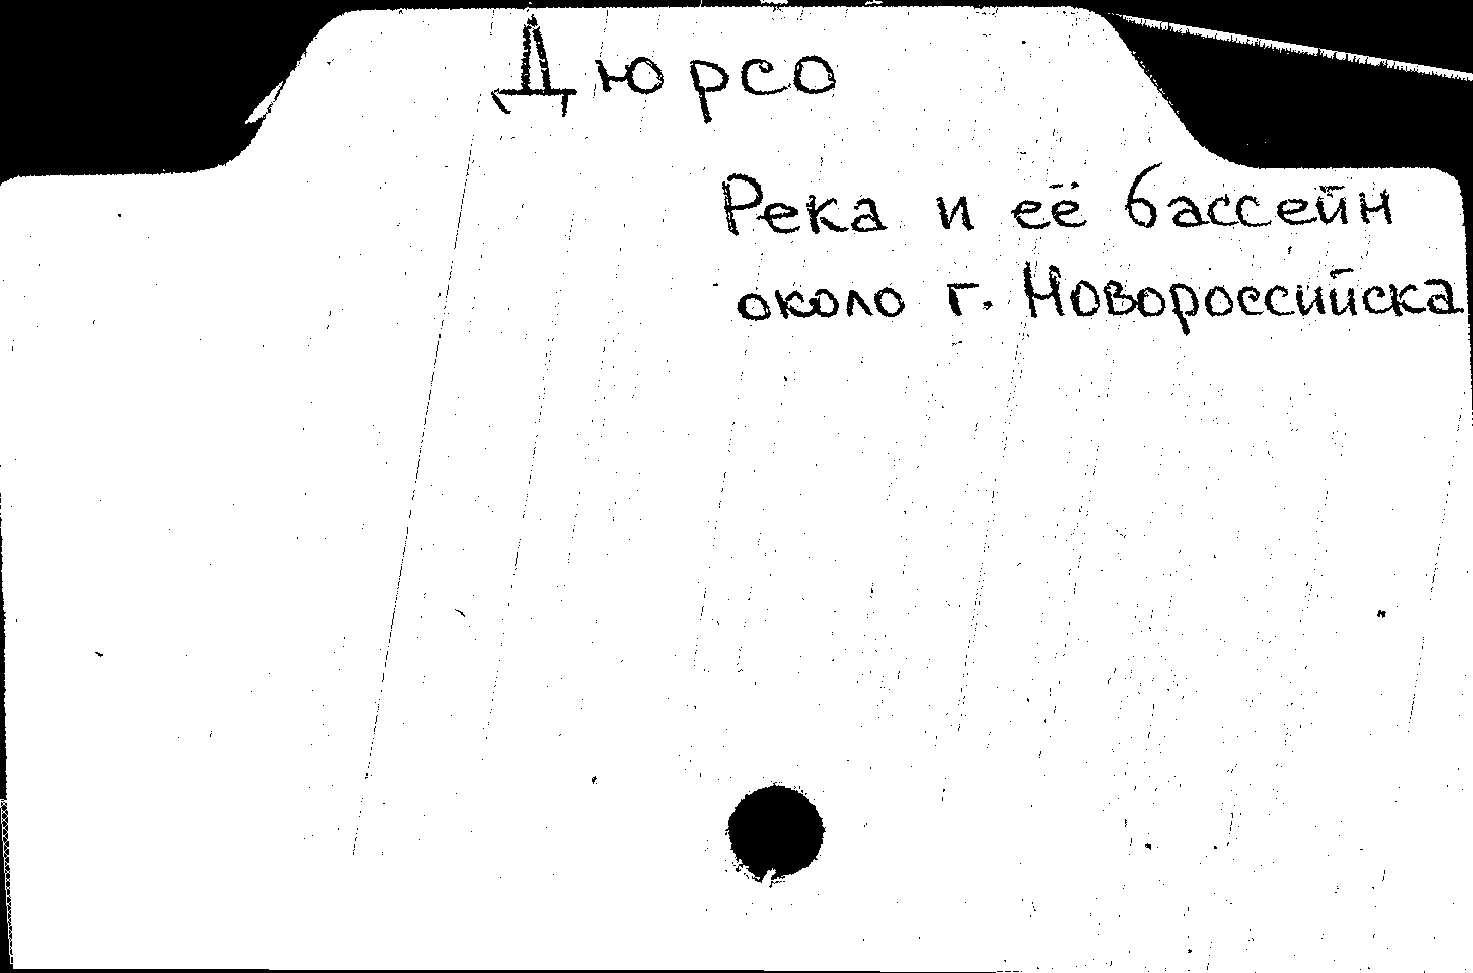 Дюрсо
Река и её бассейн
около г. Новороссийска